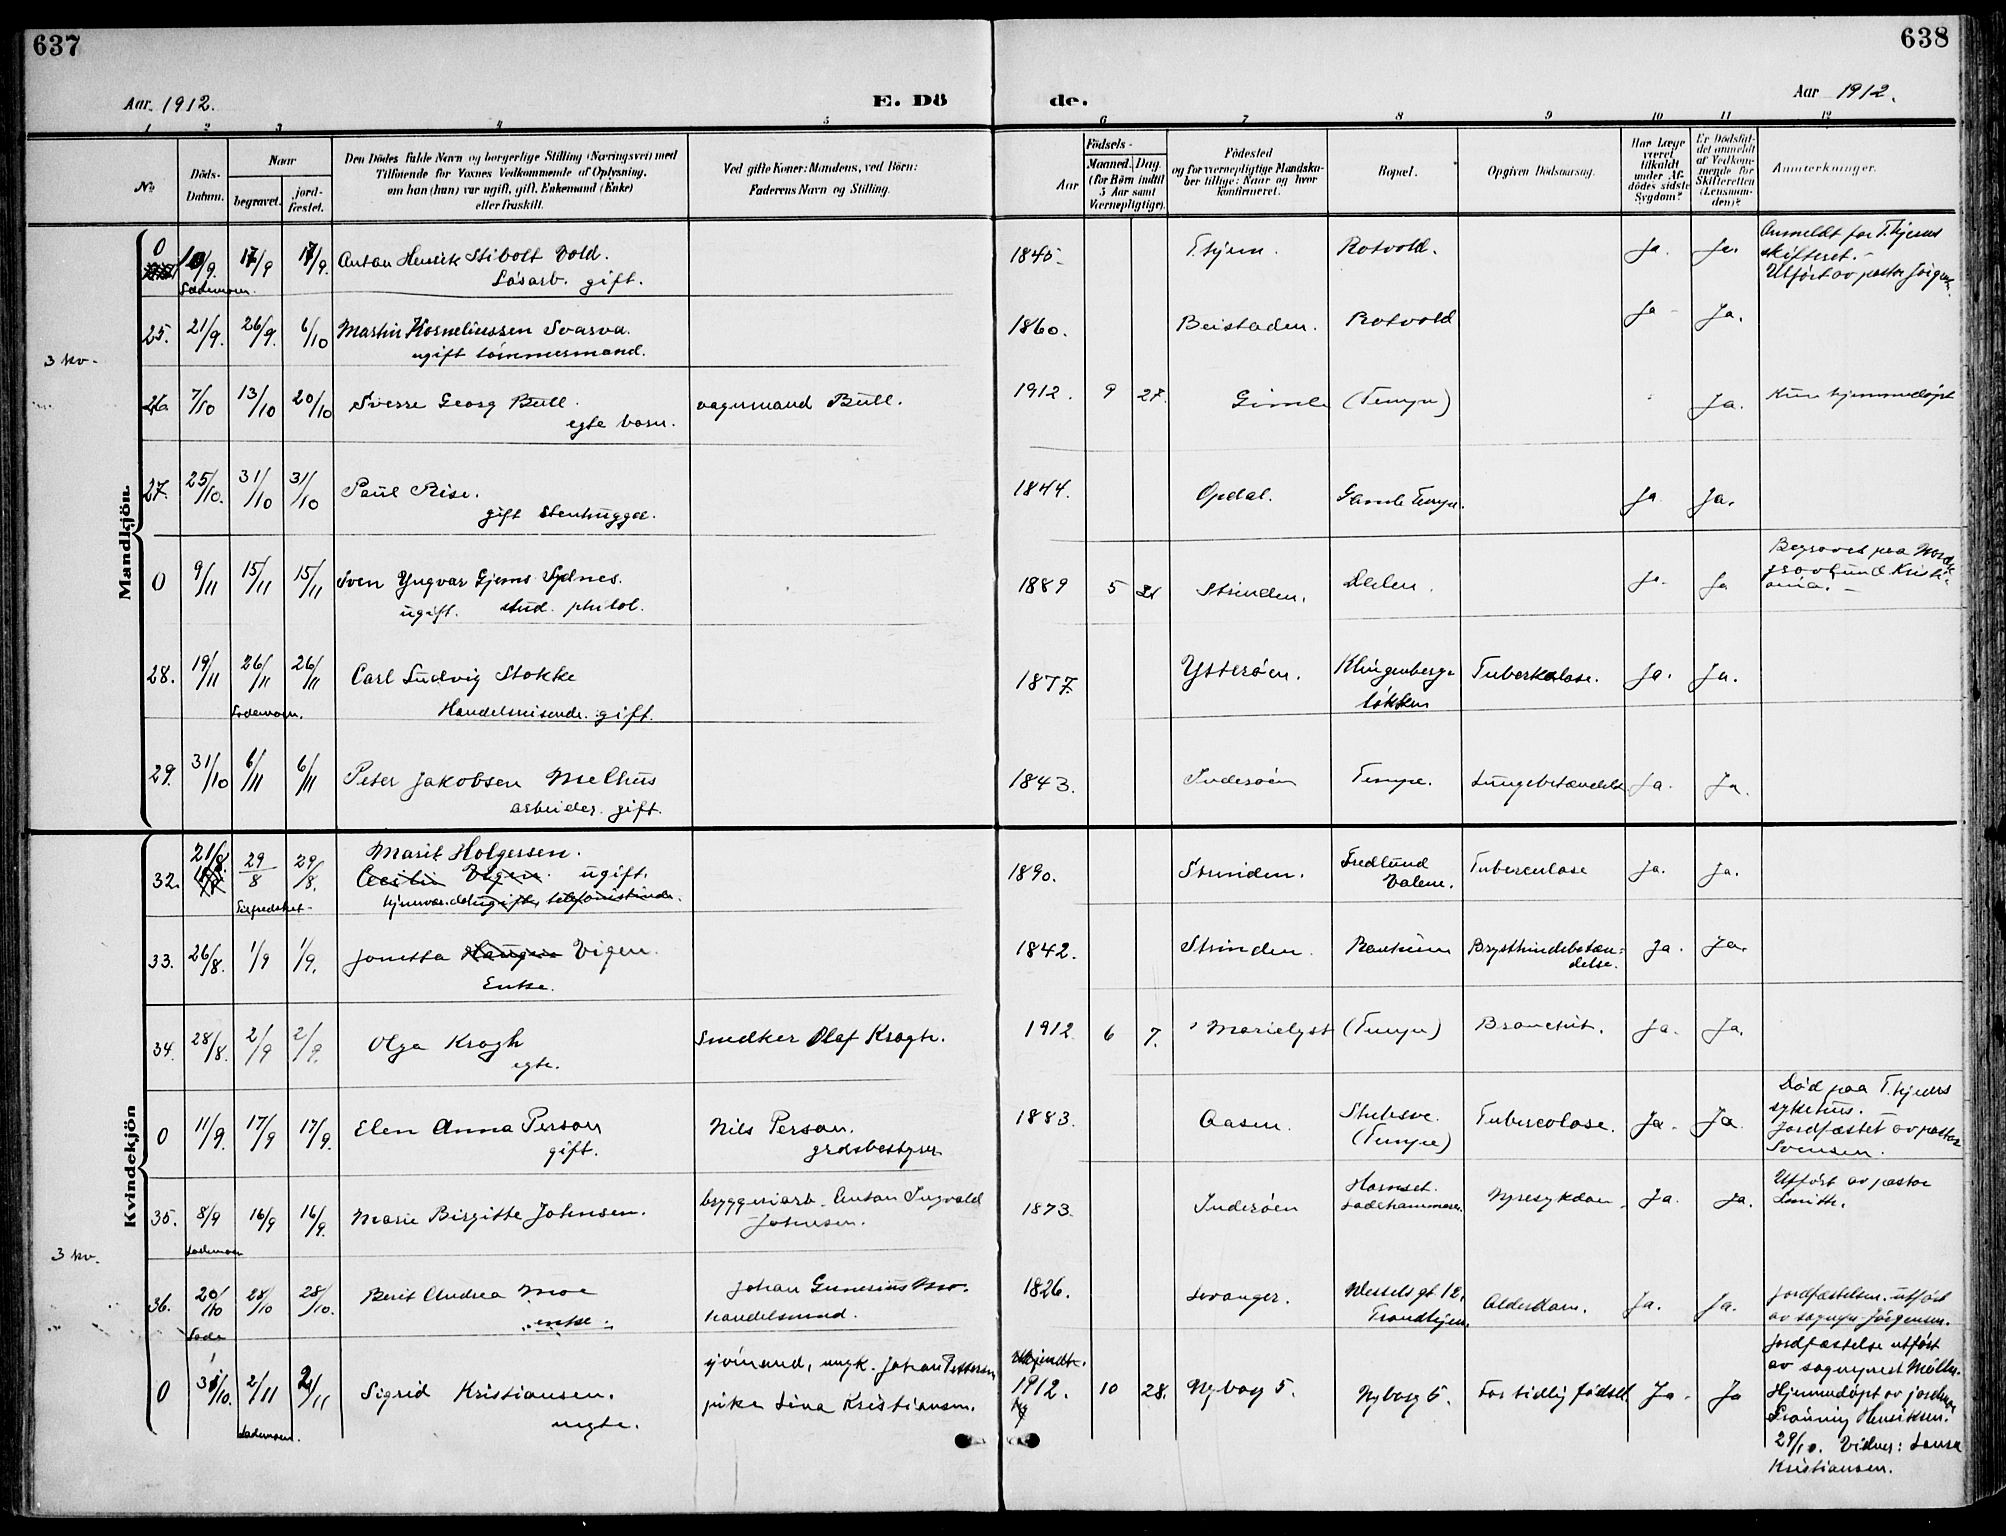 637
638
Aar. 1912.
E. Dö
de.
Aar 1912.
1 2 3 4 5 6 7 8 9 10 11 12
No
Döds-
Datum.
Naar
begravet.
jord-
fæstet.
Den Dödes fulde Navn og borgerlige Stilling (Næringsvei) med
Tilföiende for Voxnes Vedkommende af Oplysning,
om han (hun) var ugift, gift, Enkemand (Enke)
eller fraskilt.
Ved gifte Koner: Mandens, ved Börn:
Faderens Navn og Stilling.
Födsels-
Aar
Maaned.
Dag.
(for Börn indtil
5 Aar samt
Værnepligtige).
Födested
og for værnepligtige Mandska-
ber tillige: Naar og hvor
konfirmeret.
Bopæl.
Opgiven Dödsaarsag.
Har Læge
været
tilkaldt
under Af-
dödes sidste
Sygdom?
Er Dödsfal-
det anmeldt
af Vedkom-
mende for
Skifteretten
(Lensman-
den)?
Anmerkninger.
Mandkjön.
0 /9. 17/9 17/9. Anton Henrik Stibolt Vold. 1845 T.hjem. Rotvold. Ja. Ja. Anmeldt for T.hjems
Lademoen. Løsarb. gift. skifteret.-
Utført av pastor Jörgens.
25. 21/9. 26/9. 6/10 Martin Korneliussen Svarva. 1860. Beistaden. Rotvold Ja - Ja.
ugift tømmermand.
3 kv.
26 7/10 13/10 20/10 Sverre Georg Bull. vognmand Bull. 1912. 9 27. Gimle (Tempe) Ja. Kun hjemmedøpt
egte barn.
27. 25/10. 31/10 31/10 Paul Rise. 1844. Opdal. Gamle Tempe. Ja. Ja.
gift stenhugger.
0 9/11 15/11 15/11 Sven Yngvar Gjems Sydnes. 1889 5 Strinden. Dalen. Ja. Ja Begravet paa Nordr.
ugift. stud. philol. gravlund Kristi-
ania. -
28. 19/11 26/11 26/11 Carl Ludvig Stokke 1877. Ytterøen. Klingenberg- Tuberkulose. Ja. Ja.
Lademoen. Handelsreisende. gift. løkken
29. 31/10 6/11 6/11 Peter Jakobsen Melhus 1843. Inderøen Tempe. Lungebetændelse Ja. Ja.
arbeider. gift.
Kvindekjön
32. 21/8. 29/8 29/8. Marit Holgersen. 1890. Strinden. Fredlund Tuberculose Ja. Ja.
Cecilie Vigen. ugift. Valene.
ugift, telefonistinde.
33. 26/8. 1/9 1/9. Jonetta Haugen Vigen. 1842. Strinden. Ranheim Brysthindebetæn- Ja. Ja.
Enke. delse.
34. 28/8. 2/9 2/9. Olga Krogh Snedker Olaf Krogh. 1912 6 7. Marielyst (Tempe) Bronchit. Ja. Ja.
egte.
0 11/9. 17/9 17/9. Elen Anna Person Nils Person. 1883. Aasen. Stubsve. Tuberculose. Ja. Ja. Død paa T.hjems
gift. grdsbestyrer (Tempe) sykehus.
Jordfæstet av pastor
Svensen.
35. 8/9 16/9 16/9. Marie Birgitte Johnsen. bryggeriarb. Anton Ingvald 1873. Inderøen Harnset. Nyresykdom. Ja. Ja. Utført av pastor
Lademoen Johnsen. Ladehammeren. Smith.
3 kv.
36. 20/10 28/10 28/10. Berit Andrea Moe Johan Gunerius Mo. 1826. Levanger. Wesselsgt 12. Alderdom. Ja. Ja. Jordfæstelsen utført
Lade enke. handelsmand. Trondhjem. av sognepr. Jörgensen.
0 31/10. 2/11 2/11 Sigrid Kristiansen. sjømand, ungk. Johan Pettersen 1912. 10 28. Nyborg 5. Nyborg 5. For tidlig fødsel. Ja - Ja Jordfæstelse utført
Lademoen. uegte. pike Lina Kristiansen. av sogneprest Möller.
Hjemmedøpt av jordmor
Henriksen.
29/10. Vidner: Laura
Kristiansen.